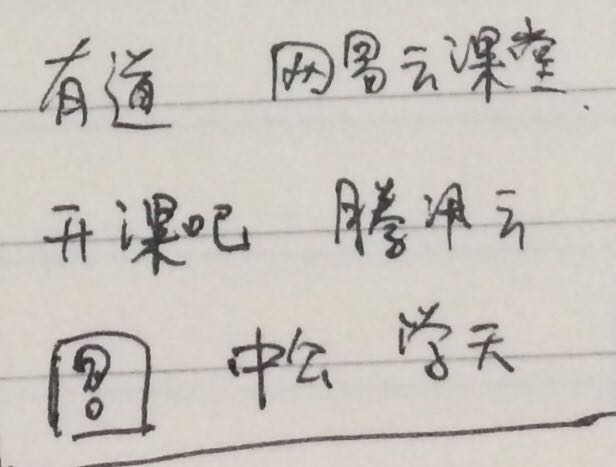 有道 网易云课堂
开课吧 腾讯云
中公 学天